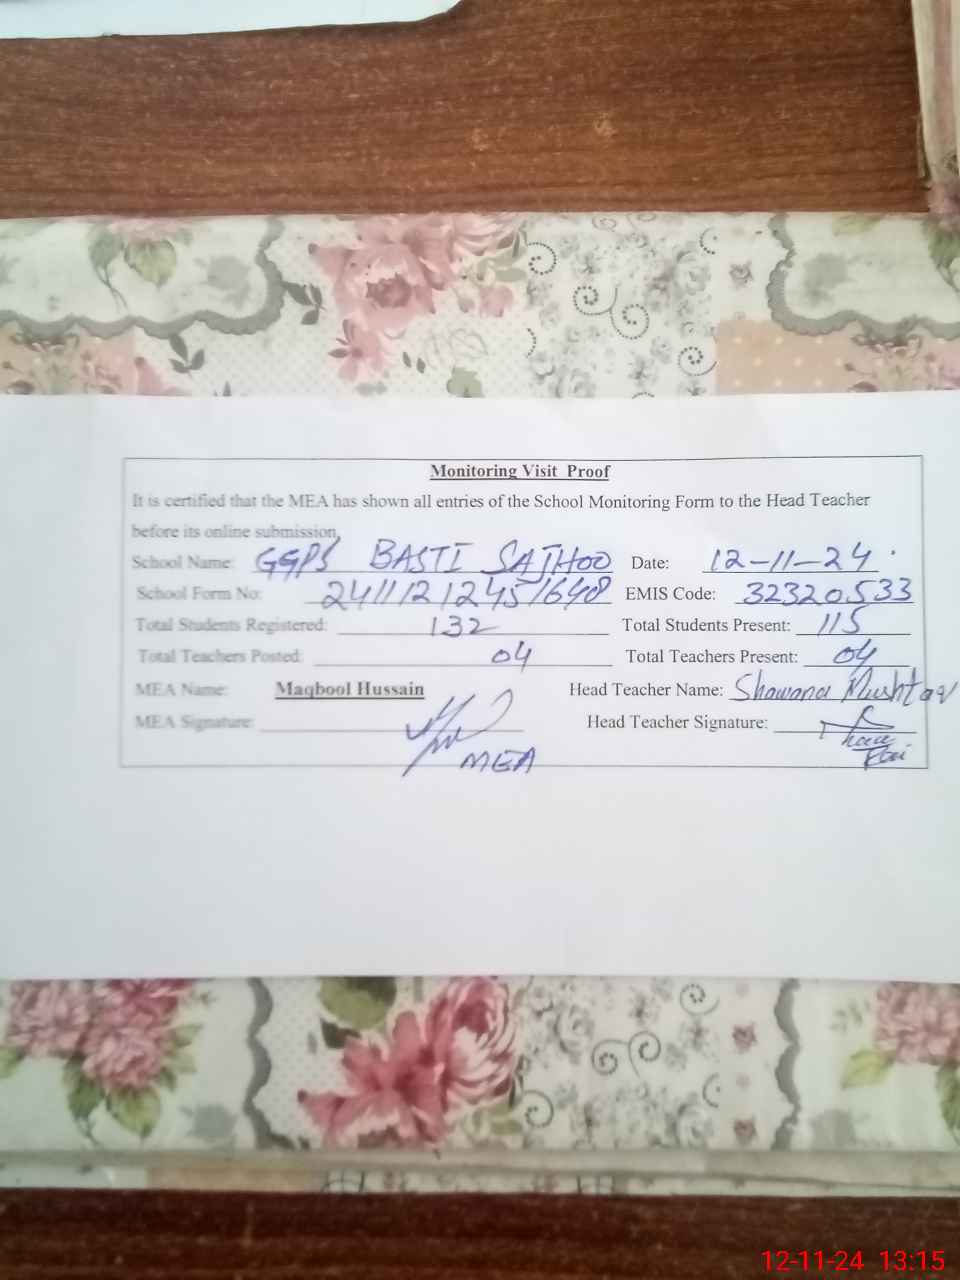 Monitoring Visit Proof
It is certified that the MEA has shown all entries of the School Monitoring Form to the Head Teacher
before its online submission.
School Name: GGPS BASTI SAJHOO Date: 12-11-24
School Form No: EMIS Code: 32320533
Total Students Registered: 132 Total Students Present: 115
Total Teachers Posted: 04 Total Teachers Present: 04
MEA Name: Maqbool Hussain Head Teacher Name: Shawana Mushtaq
MEA Signature: Head Teacher Signature:
MEA
12-11-24 13:15